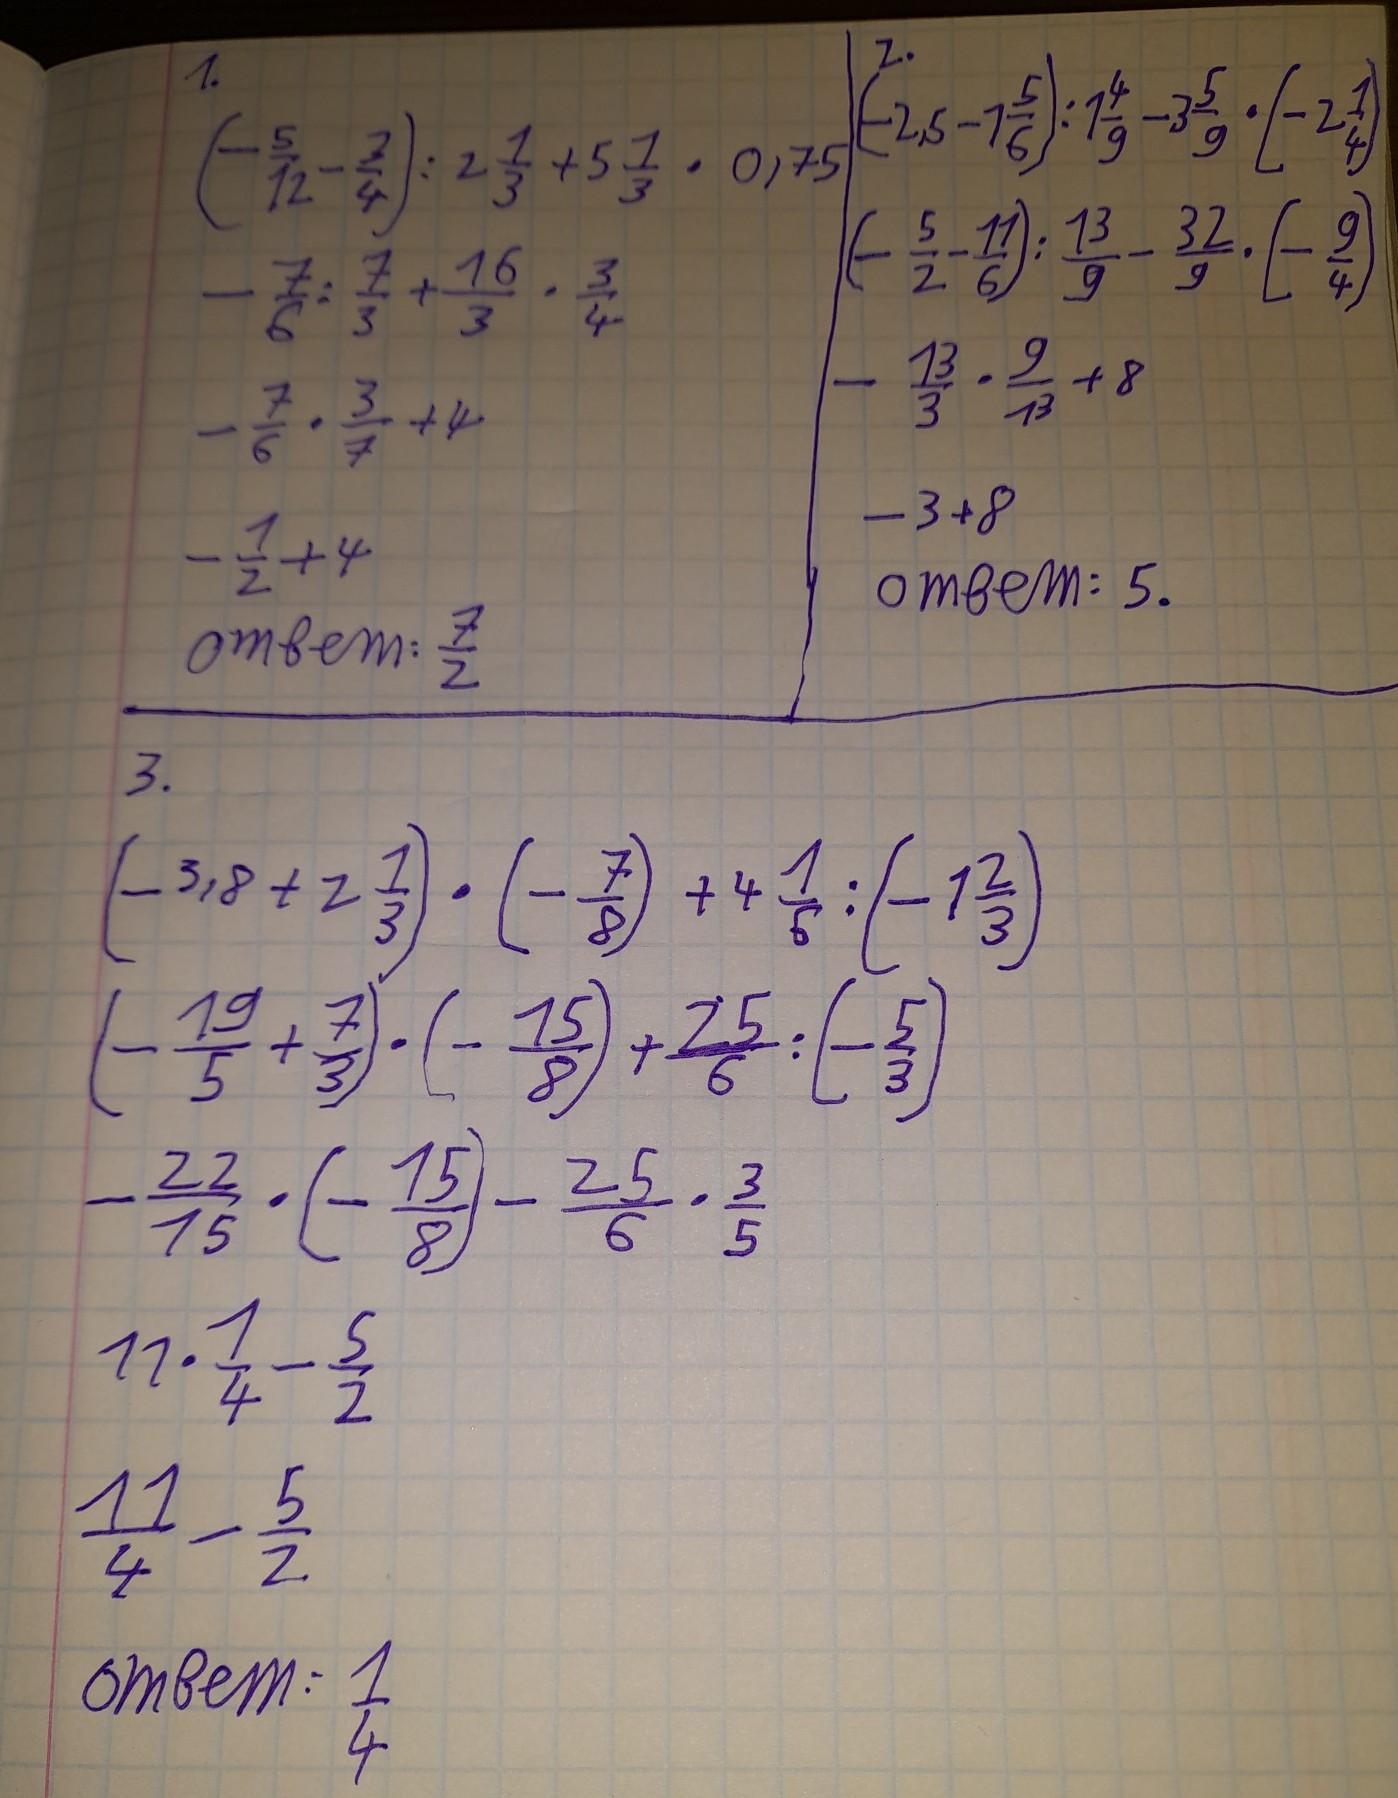 1.
(-5/12 - 3/4) : 2 1/3 + 5 1/3 · 0,75
-7/6 : 7/3 + 16/3 · 3/4
-7/6 · 3/7 + 4
-1/2 + 4
ответ: 7/2
2.
(-2,5 - 1 5/6) : 1 4/9 - 3 5/9 · (-2 1/4)
(-5/2 - 11/6) : 13/9 - 32/9 · (-9/4)
- 13/3 · 9/13 + 8
-3+8
ответ: 5.
3.
(-3,8 + 2 1/3) · (-7/8) + 4 1/6 : (-1 2/3)
(-19/5 + 7/3) · (-15/8) + 25/6 : (-5/3)
-22/15 · (-15/8) - 25/6 · 3/5
11 · 1/4 - 5/2
11/4 - 5/2
ответ: 1/4